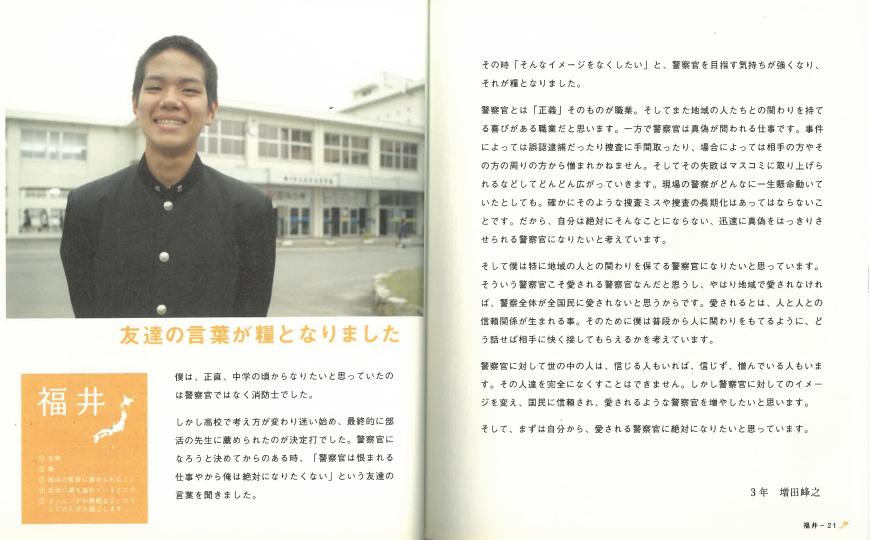 友達の言葉が糧となりました
福井
① 生物
② 海
③ 部活の監督に薦められたこと
④
⑤
してのんびり過ごします
僕は、正直、中学の頃からなりたいと思っていたの
は警察官ではなく消防士でした。
しかし高校で考え方が変わり迷い始め、最終的に部
活の先生に薦められたのが決定打でした。警察官に
なろうと決めてからのある時、「警察官は恨まれる
仕事やから俺は絶対になりたくない」という友達の
言葉を聞きました。
その時「そんなイメージをなくしたい」と、警察官を目指す気持ちが強くなり、
それが糧となりました。
警察官とは「正義」そのものが職業。そしてまた地域の人たちとの関わりを持て
る喜びがある職業だと思います。一方で警察官は真偽が問われる仕事です。事件
によっては誤認逮捕だったり捜査に手間取ったり、場合によっては相手の方やそ
の方の周りの方から憎まれかねません。そしてその失敗はマスコミに取り上げら
れるなどしてどんどん広がっていきます。現場の警察がどんなに一生懸命動いて
いたとしても。確かにそのような捜査ミスや捜査の長期化はあってはならないこ
とです。だから、自分は絶対にそんなことにならない、迅速に真偽をはっきりさ
せられる警察官になりたいと考えています。
そして僕は特に地域の人との関わりを保てる警察官になりたいと思っています。
そういう警察官こそ愛される警察官なんだと思うし、やはり地域で愛されなけれ
ば、警察全体が全国民に愛されないと思うからです。愛されるとは、人と人との
信頼関係が生まれる事。そのために僕は普段から人に関わりをもてるように、ど
う話せば相手に快く接してもらえるかを考えています。
警察官に対して世の中の人は、信じる人もいれば、信じず、憎んでいる人もいま
す。その人達を完全になくすことはできません。しかし警察官に対してのイメー
ジを変え、国民に信頼され、愛されるような警察官を増やしたいと思います。
そして、まずは自分から、愛される警察官に絶対になりたいと思っています。
3年 増田峰之
福井－21